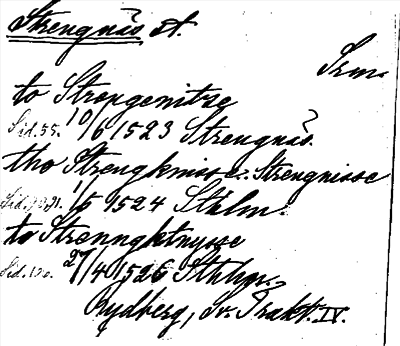 Strengnäs st.
Srm.
to Strepgenitze
Sid. 55. 10/6 1523 Strengnäs.
tho Strengknisse: Strengnisse
1/5 1524 Sthlm.
to Strenngktnysse
Sid. 120. 27/4 1526 Sthlm.
Rydberg, Sv. Trakt. IV.